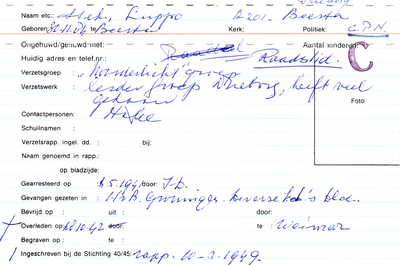 Naam etc.: Stek, Luppo A201. Beerta
Geboren: te Beerta Kerk: Politiek: C.P.N.
Ongehuwd/gehuwd met: Aantal kinderen:
Huidig adres en telef.nr.: Raadslid. C
Verzetsgroep : "Noorderlicht" groep
Verzetswerk : leider groep Drieborg, heeft veel
gedaan Foto
Contactpersonen:
Schuilnaam :
Verzetsrapp. ingel. dd. : bij:
Naam genoemd in rapp.:
op bladzijde:
Gearresteerd op door: S.D.
Gevangen gezeten in : H.v.B. Groningen
Bevrijd op : uit : door:
Overleden op: 10.42 door: te : Weimar
Begraven op : te :
Ingeschreven bij de Stichting 40/45: rapp. 10-3-1949.